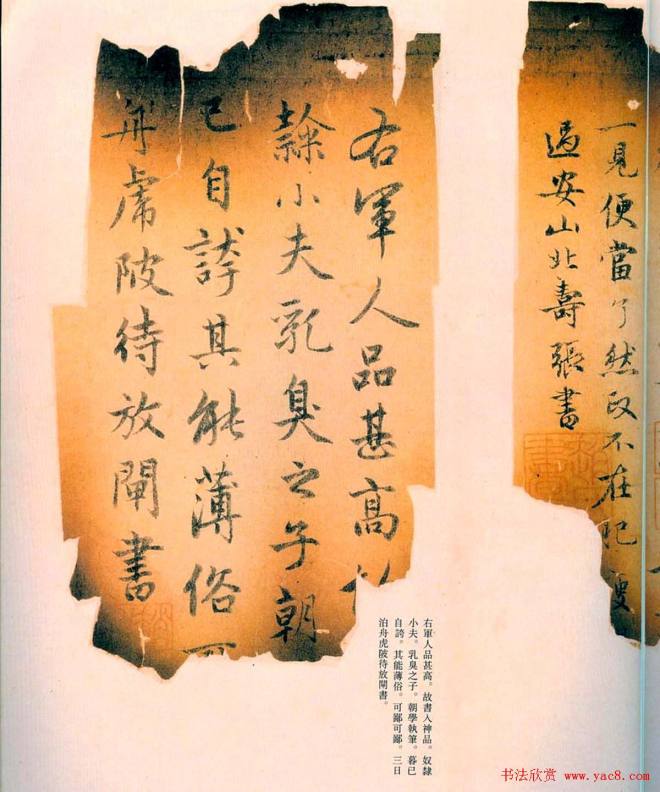 一見便當了然政不在肥
過安山北壽張書
右軍人品甚高
隸小夫乳臭之子朝
已自誇其能薄俗可
舟虎陂待放閘書
右軍人品甚高。故書入神品。奴隸
小夫。乳臭之子。朝學執筆。暮已
自誇。其能薄俗。可鄙可鄙。三日
泊舟虎陂待放閘書。
书法欣赏 www.yac8.com